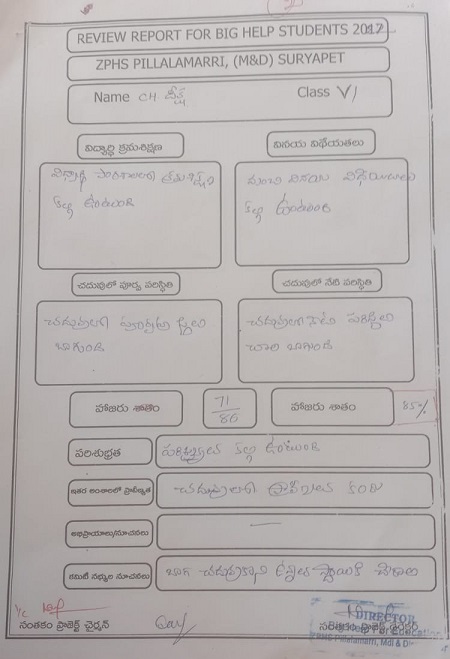 REVIEW REPORT FOR BIG HELP STUDENTS 2017
ZPHS PILLALAMARRI, (M&D) SURYAPET
Name CH దీక్ష Class VI
విద్యార్థి క్రమశిక్షణ
వినయ విధేయతలు
విద్యార్థి
కల్గి ఉంటుంది
మంచి వినయ విధేయతలు
కల్గి ఉంటుంది
చదువులో పూర్వ పరిస్థితి
చదువులో నేటి పరిస్థితి
చదువులో
బాగుంది
చదువులో నేటి పరిస్థితి
చాల బాగుంది
హాజరు శాతం
71
86
హాజరు శాతం
85%
పరిశుభ్రత
పరిశుభ్రత కల్గి ఉంటుంది
ఇతర అంశాలలో ప్రావీణ్యత
చదువులో ప్రావీణ్యత కలదు
అభిప్రాయాలు/సూచనలు
—
కమిటీ సభ్యుల సూచనలు
బాగ చదువుకొని ఉన్నత స్థాయికి
సంతకం ప్రాజెక్ట్ చైర్మన్
DIRECTOR
సంతకం ప్రాజెక్ట్
Education
ZPHS Pillalamarri, Mdl & Dt